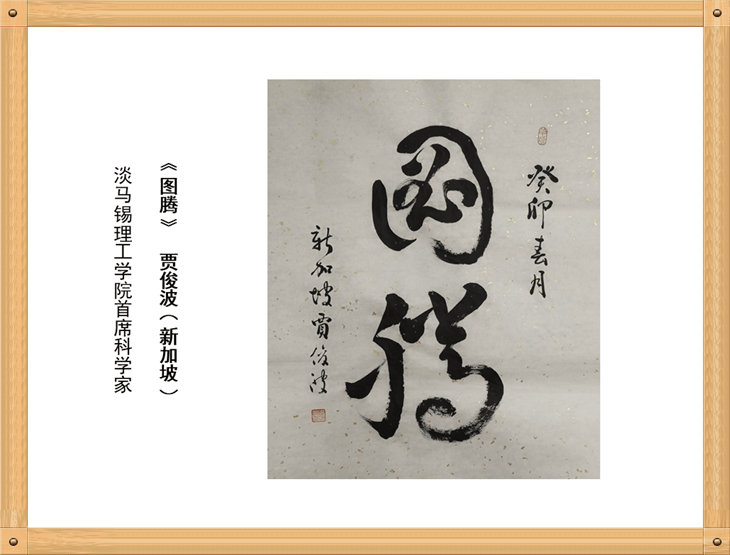 《图腾》 贾俊波（新加坡）
淡马锡理工学院首席科学家
癸卯春月
圖騰
新加坡賈俊波